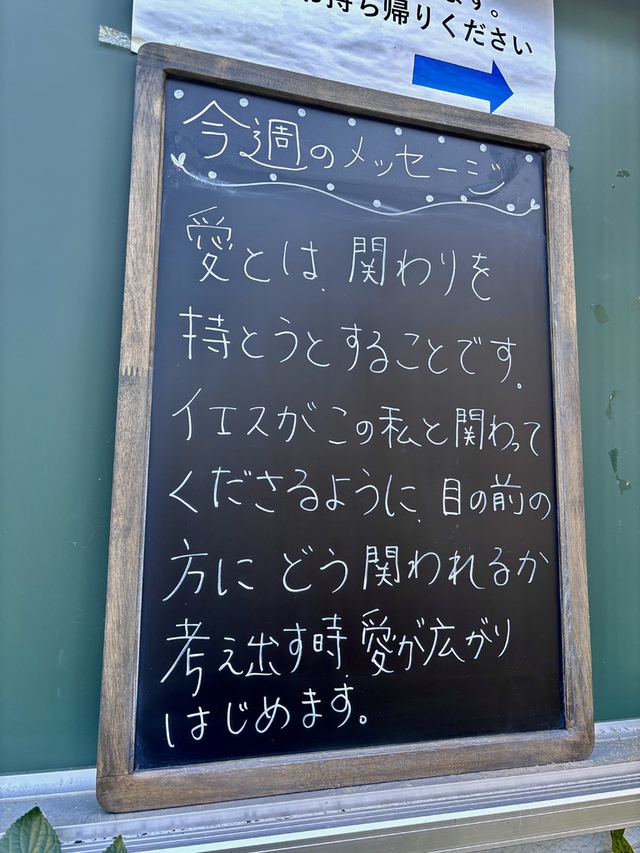 ます。
お持ち帰りください
今週のメッセージ
愛とは、関わりを
持とうとすることです。
イエスがこの私と関わって
くださるように、目の前の
方に どう関われるか
考え出す時、愛が広がり
はじめます。